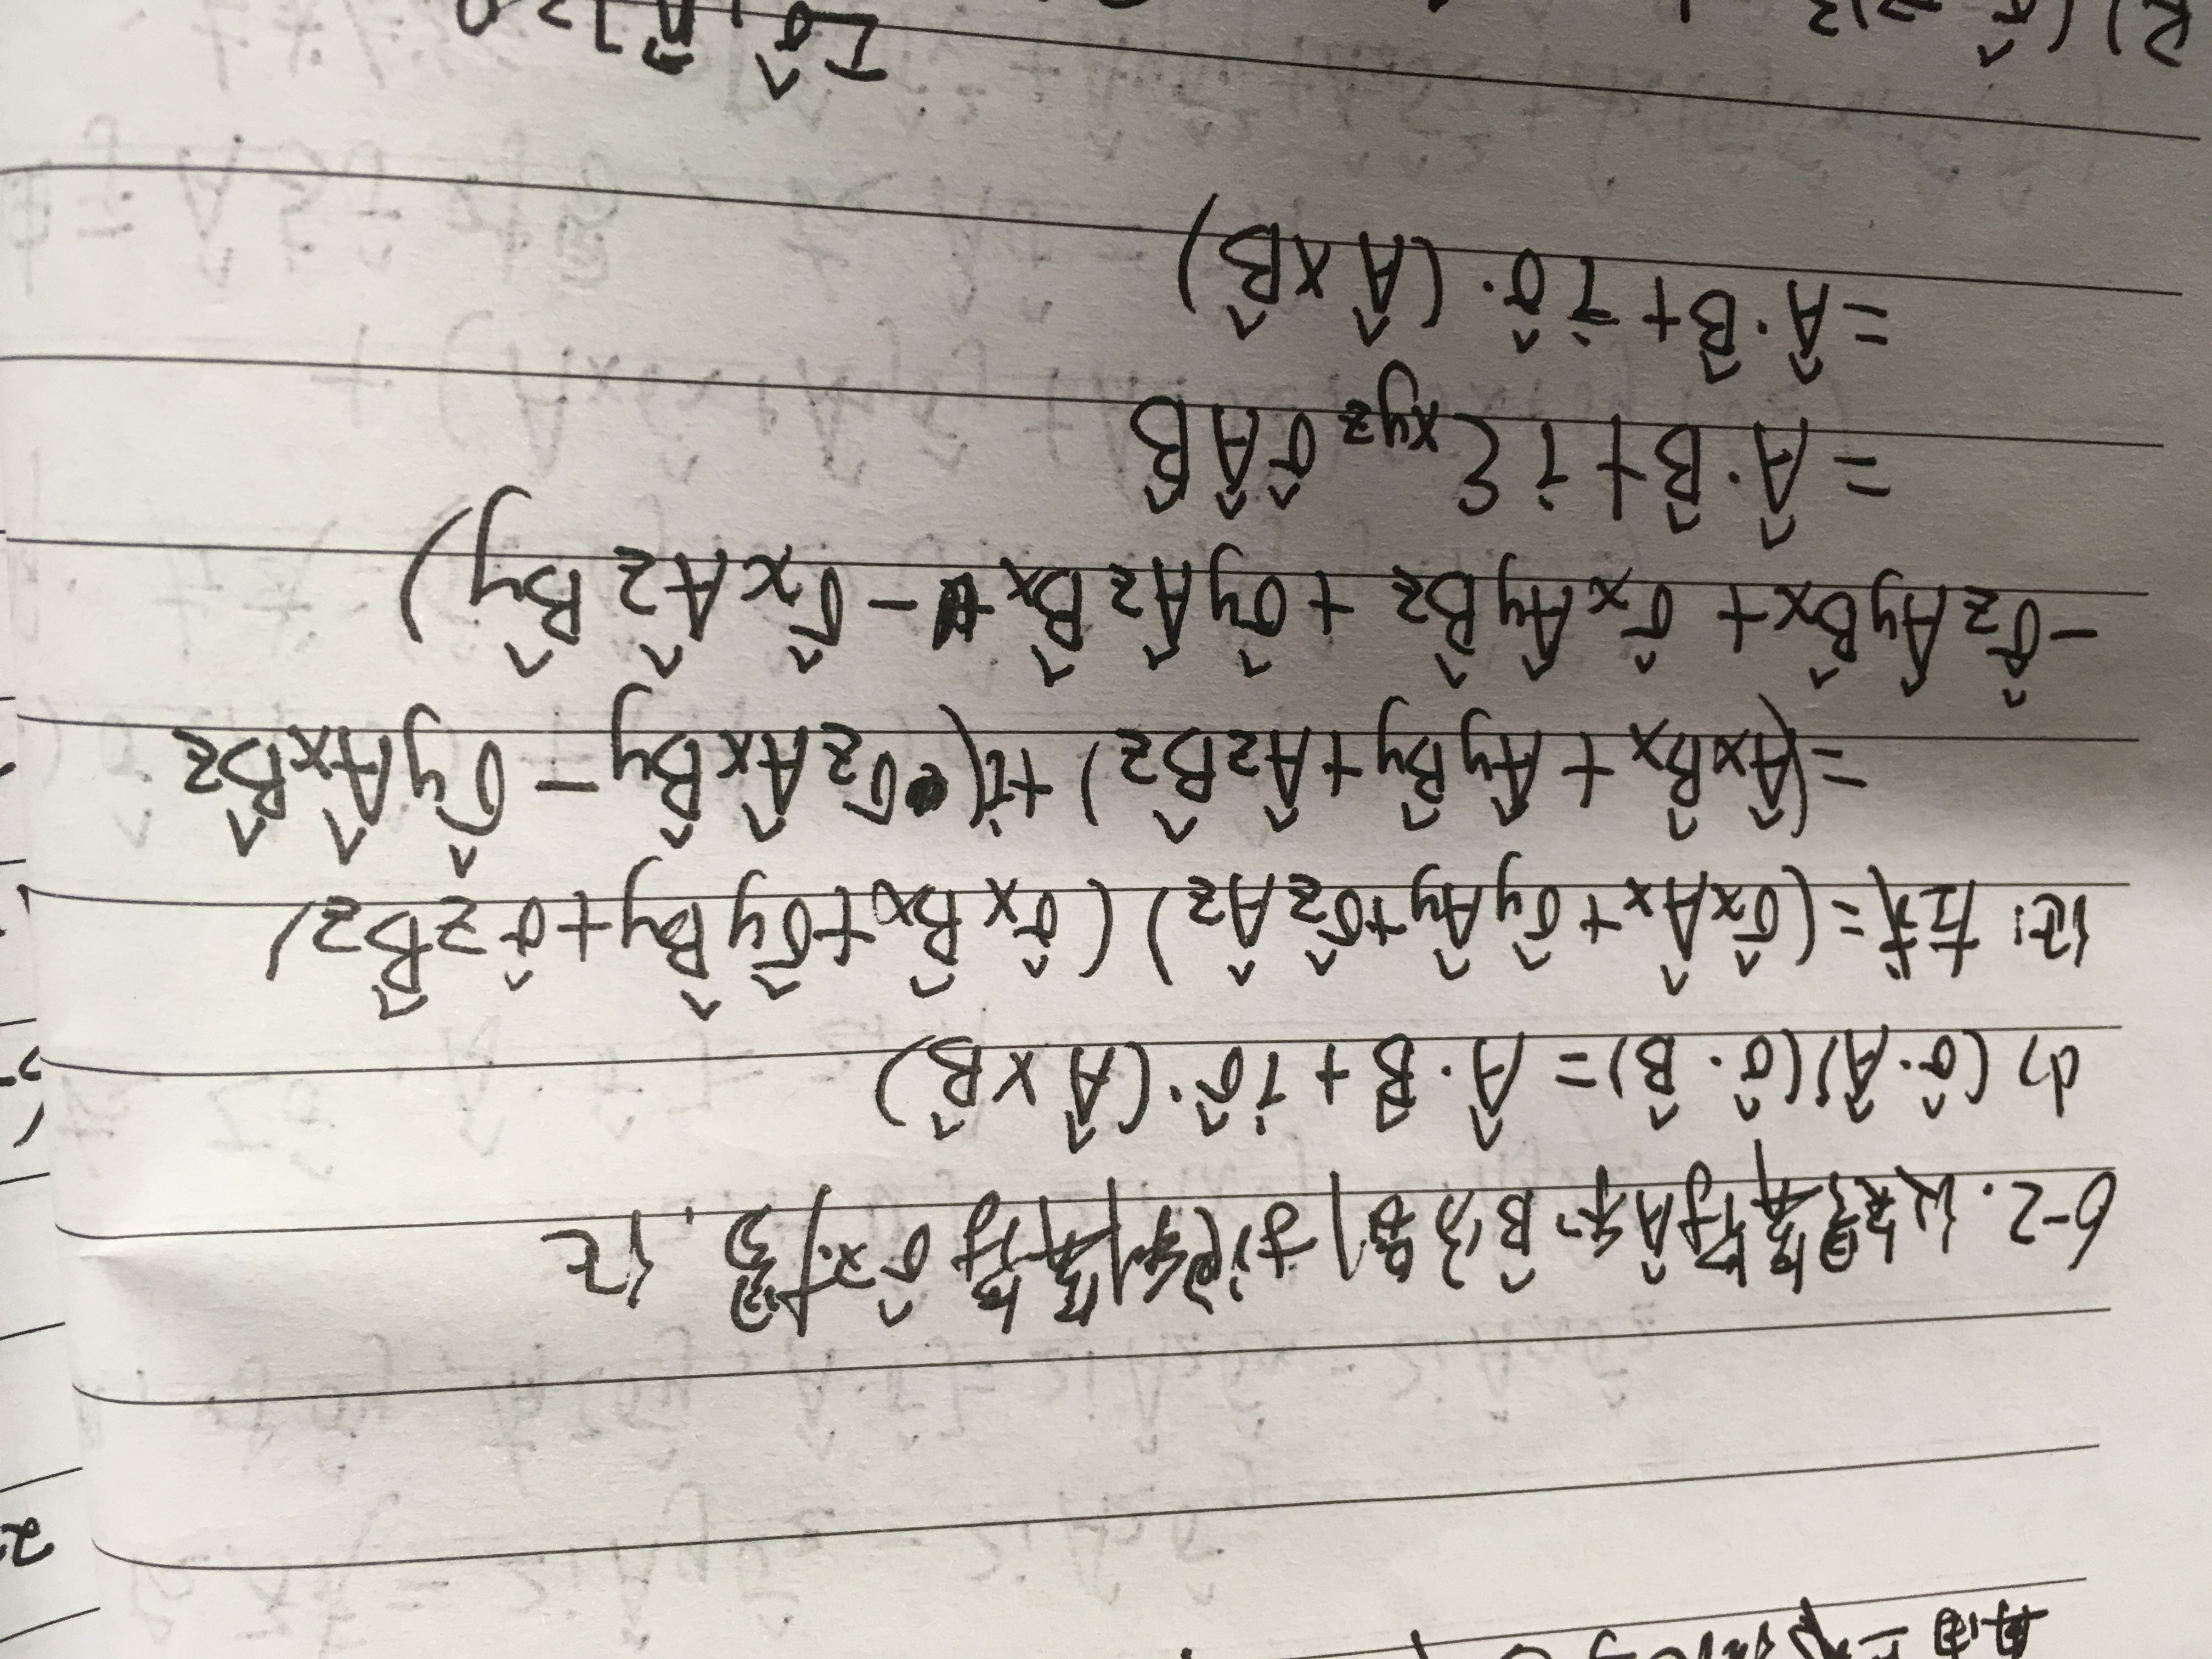 再由上式
6-2. 设矢量算符Â和B̂分别与泡利算符σ̂对易, 证
(1) (σ̂·Â)(σ̂·B̂) = Â·B̂ + iσ̂·(Â×B̂)
证: 左式 = (σ̂xÂx + σ̂yÂy + σ̂zÂz)(σ̂xB̂x + σ̂yB̂y + σ̂zB̂z)
= (ÂxB̂x + ÂyB̂y + ÂzB̂z) + i(σzÂxB̂y − σ̂yÂxB̂z
− σ̂zÂyB̂x + σ̂xÂyB̂z + σ̂yÂzB̂x − σ̂xÂzB̂y)
= Â·B̂ + iεxyzσ̂ÂB̂
= Â·B̂ + iσ̂·(Â×B̂)